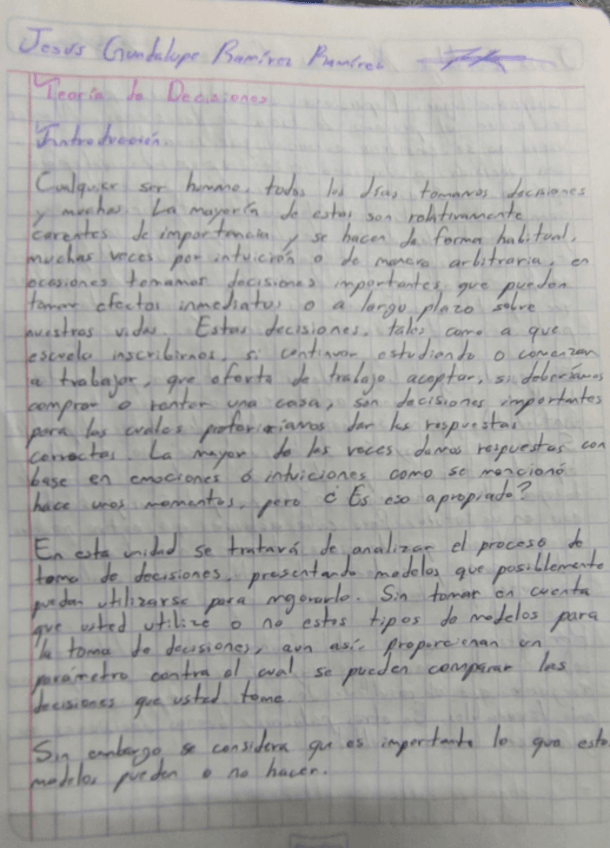 Jesus Guadalupe Ramírez Ramírez
Teoría de Decisiones
Introducción
Cualquier ser humano, todos los días tomamos decisiones
y muchas. La mayoría de estas son relativamente
carentes de importancia y se hacen de forma habitual,
muchas veces por intuición o de manera arbitraria, en
ocasiones tomamos decisiones importantes que pueden
tomar efectos inmediatos o a largo plazo sobre
nuestras vidas. Estas decisiones, tales como a que
escuela inscribirnos, si continuar estudiando o comenzar
a trabajar, que oferta de trabajo aceptar, si deberíamos
comprar o rentar una casa, son decisiones importantes
para las cuales preferiríamos dar las respuestas
correctas. La mayor de las veces damos respuestas con
base en emociones ó intuiciones como se mencionó
hace unos momentos, pero ¿Es eso apropiado?
En esta unidad se tratará de analizar el proceso de
toma de decisiones, presentando modelos que posiblemente
puedan utilizarse para mejorarlo. Sin tomar en cuenta
que usted utilize o no estos tipos de modelos para
la toma de decisiones, aun así, proporcionan un
parámetro contra el cual se pueden comparar las
decisiones que usted tome
Sin embargo se considera que es importante lo que esto
modelos pueden o no hacer.